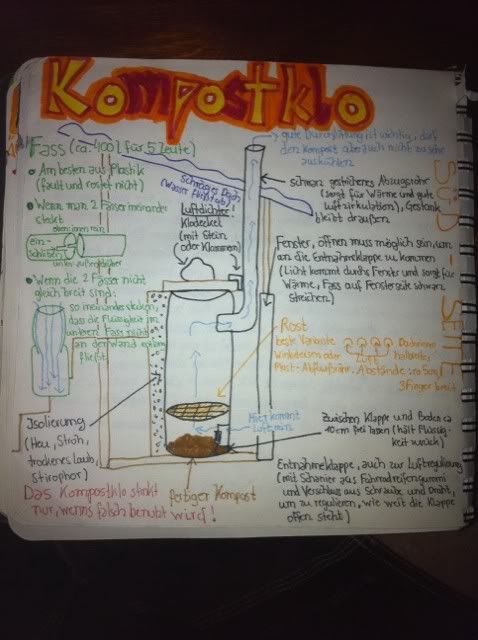 Kompostklo
Fass (ca. 400 l für 5 Leute)
• Am besten aus Plastik
(fault und rostet nicht)
• Wenn man 2 Fässer ineinander
steckt
oben innen rein
ein-
schnitzen
• Wenn die 2 Fässer nicht
gleich breit sind:
so ineinander stecken,
dass die Flüssigkeit im
unteren Fass nicht
an der Wand entlang
fließt
Isolierung
(Heu, Stroh,
trockenes Laub,
Stirophor)
Das Kompostklo stinkt
nur, wenns falsch benutzt wird!
fertiger Kompost
Schräges Dach
(Wasser fließt ab)
Luftdichter!
Klodeckel
(mit Stein
oder Klammern)
gute Durchlüftung ist wichtig, darf
den Kompost aber auch nicht zu sehr
auskühlen
schwarz gestrichenes Abzugsrohr
(sorgt für Wärme und gute
Luftzirkulation), Gestank
bleibt draußen
Fenster, öffnen muss möglich sein, um
an die Entnahmeklappe zu kommen
(Licht kommt durchs Fenster und sorgt für
Wärme, Fass auf Fensterseite schwarz
streichen)
SÜD-SEITE
Rost
beste Variante
Winkeleisen oder
Plast-Abflussrohr. Abstände
3 Finger breit
Hier kommt
Luft rein
Zwischen Klappe und Boden ca
10 cm frei lassen (hält Flüssig-
keit zurück)
Entnahmeklappe, auch zur Luftregulierung
(mit Scharnier aus Fahrradreifengummi
und Verschluss aus Schraube und Draht,
um zu regulieren, wie weit die Klappe
offen steht)